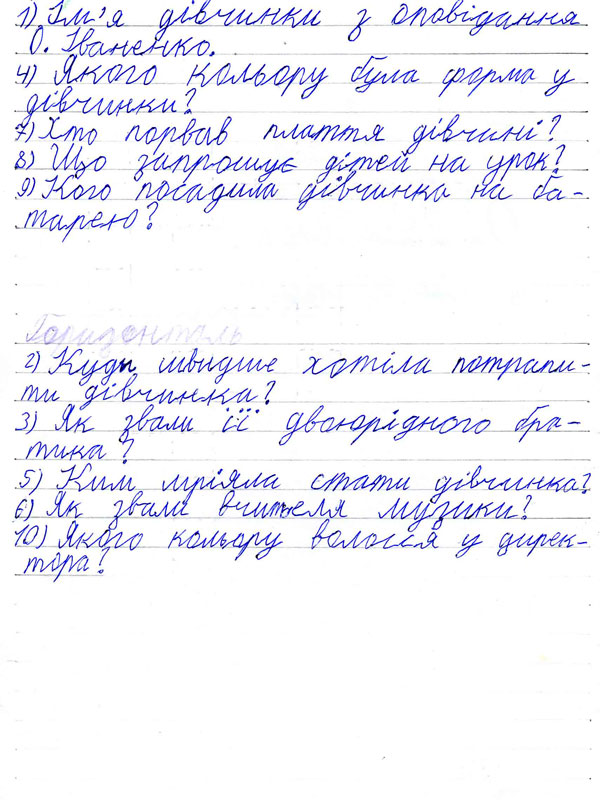 1) Ім'я дівчинки з оповідання
О. Іваненко.
4) Якого кольору була форма у
дівчинки?
7) Хто порвав плаття дівчині?
8) Що запрошує дітей на урок?
9) Кого посадила дівчинка на ба-
тарею?
Горизонталь
2) Куди швидше хотіла потрапи-
ти дівчинка?
3) Як звали її двоюрідного бра-
тика?
5) Ким мріяла стати дівчинка?
6) Як звали вчителя музики?
10) Якого кольору волосся у дирек-
тора?